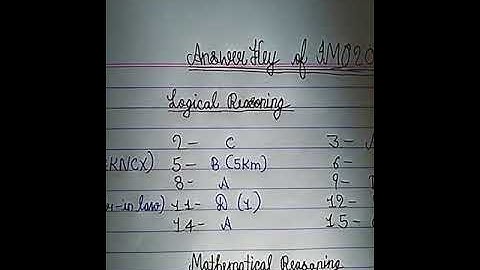 Answer Key of IMO20
Logical Reasoning
2- C 3-
KNCX) 5- B (5Km) 6-
8- A 9-
r-in law) 11- D (1) 12-
14- A 15-
Mathematical Reasoning